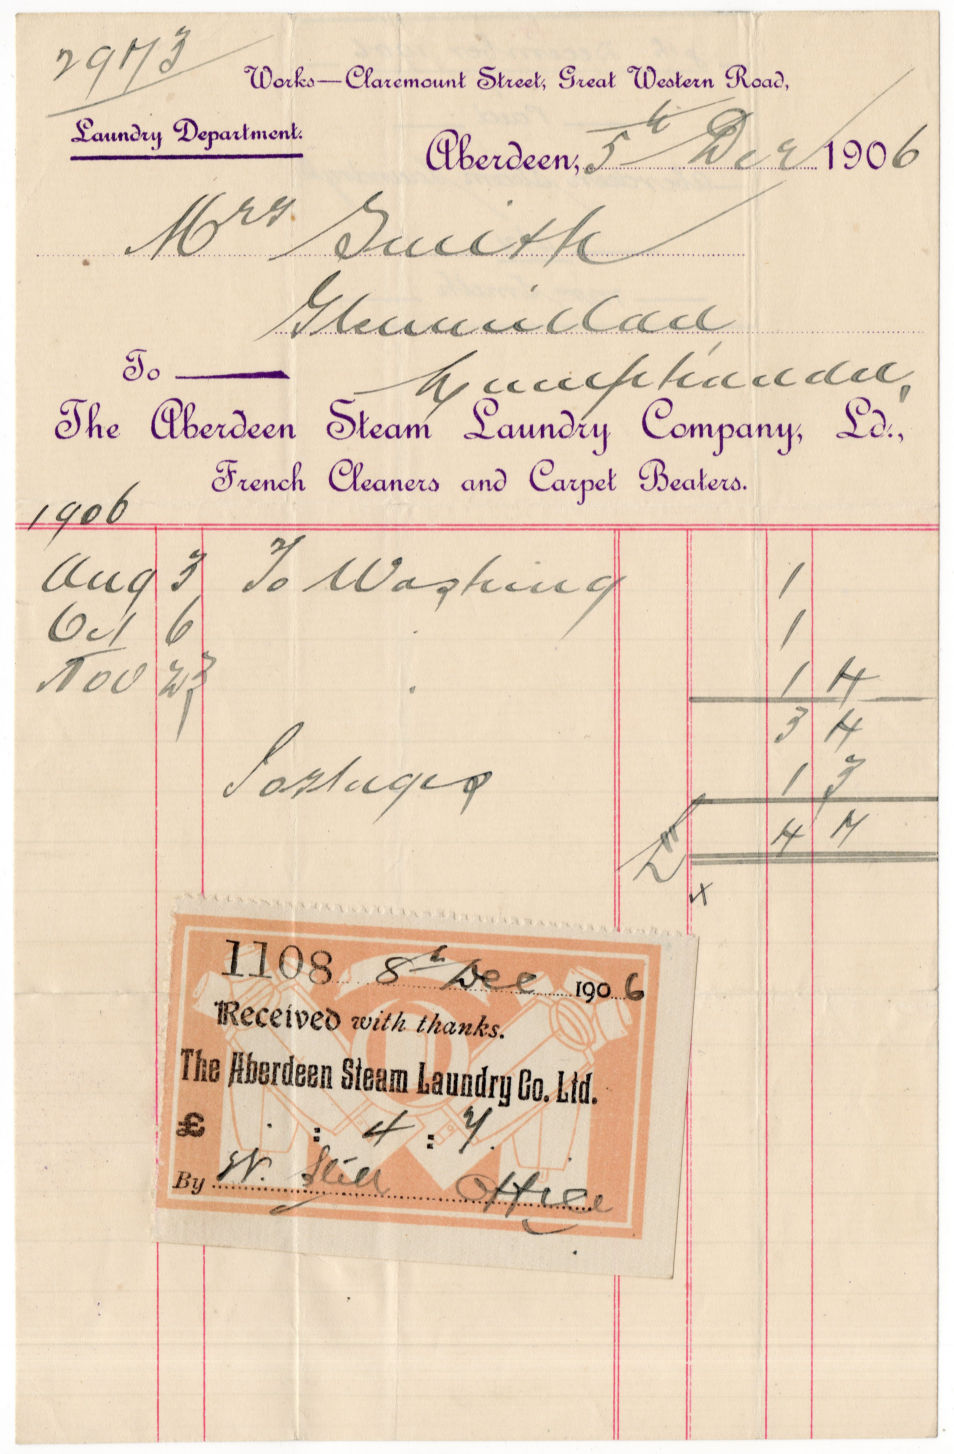 2973
Works—Claremount Street, Great Western Road,
Laundry Department.
Aberdeen, 5th Dec 1906
Mrs Smith
Glenmillan
To
Lumphanan,
The Aberdeen Steam Laundry Company, Ld.,
French Cleaners and Carpet Beaters.
1906
Aug 3 To Washing 1
Oct 6 1
Nov 23 1 4
3 4
Postages 1 3
£" 4 7
x
1108 8th Dec 1906
Received with thanks.
The Aberdeen Steam Laundry Co. Ltd.
£ : 4 : 7
By W. Still Office